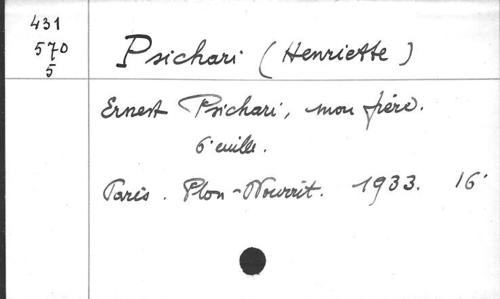 431
570
5
Psichari (Henriette)
Ernest Psichari, mon frère.
6e mille.
Paris. Plon-Nourrit. 1933. 16°